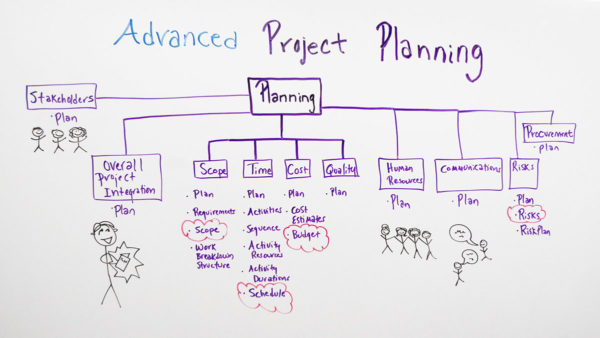 Advanced Project Planning
Planning
Stakeholders
· Plan
Overall
Project
Integration
· Plan
Scope
· Plan
· Requirements
· Scope
· Work
Breakdown
Structure
Time
· Plan
· Activities
· Sequence
· Activity
Resources
· Activity
Durations
· Schedule
Cost
· Plan
· Cost
Estimates
· Budget
Quality
· Plan
Human
Resources
· Plan
Communications
· Plan
Risks
· Plan
· Risks
· Risk Plan
Procurement
· Plan